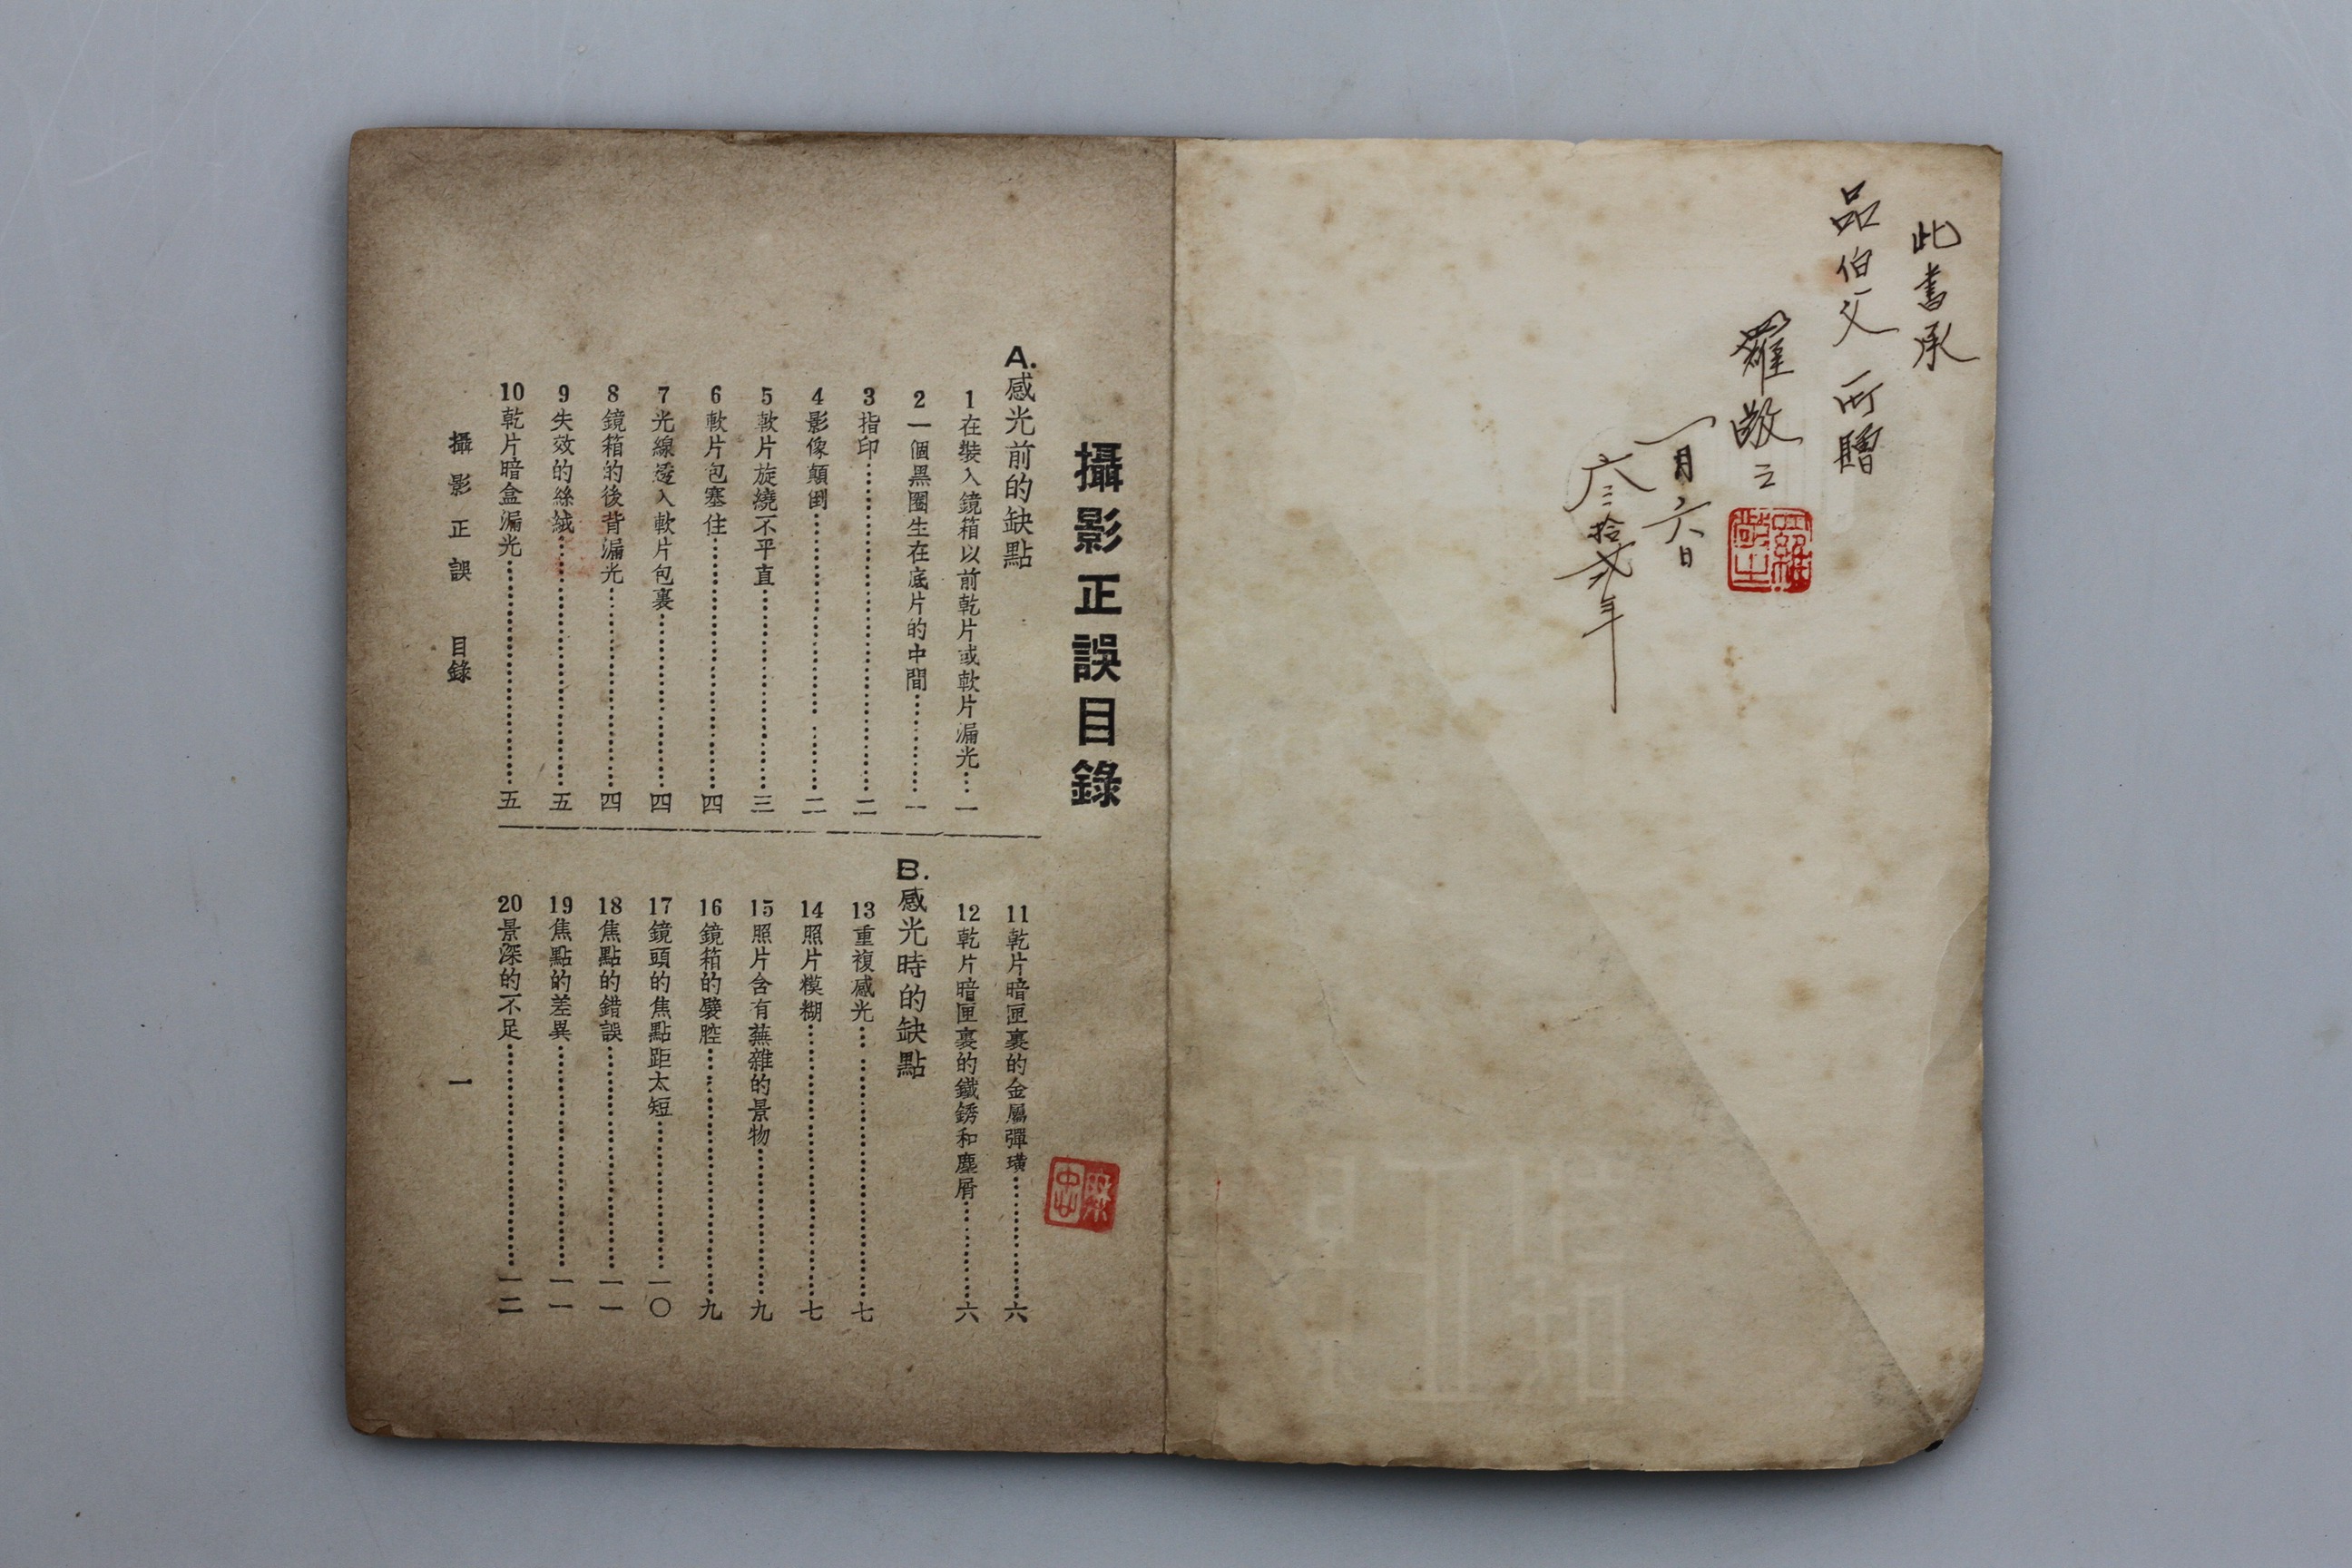 此書承
品伯父所贈
羅敬之
一月六日
叁拾貳年
羅敬之
攝影正誤目錄
A.感光前的缺點
1在裝入鏡箱以前乾片或軟片漏光……一
2一個黑圈生在底片的中間……一
3指印……二
4影像顛倒……二
5軟片旋繞不平直……三
6軟片包塞住……四
7光線透入軟片包裏……四
8鏡箱的後背漏光……四
9失效的絲絨……五
10乾片暗盒漏光……五
11乾片暗匣裏的金屬彈璜……六
12乾片暗匣裏的鐵銹和塵屑……六
B.感光時的缺點
13重複感光……七
14照片模糊……七
15照片含有蕪雜的景物……九
16鏡箱的襞腔……九
17鏡頭的焦點距太短……一〇
18焦點的錯誤……一一
19焦點的差異……一一
20景深的不足……一二
攝影正誤 目錄 一